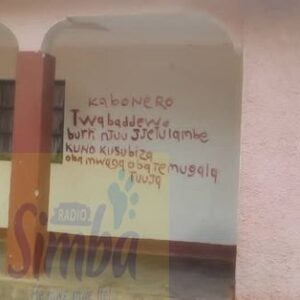 kabonero
Twabaddewo
buri njuu jjetulambe
KUNO KUSUBiZA
oba mwaga oba temugala
TUUJA
RADIO
Simba